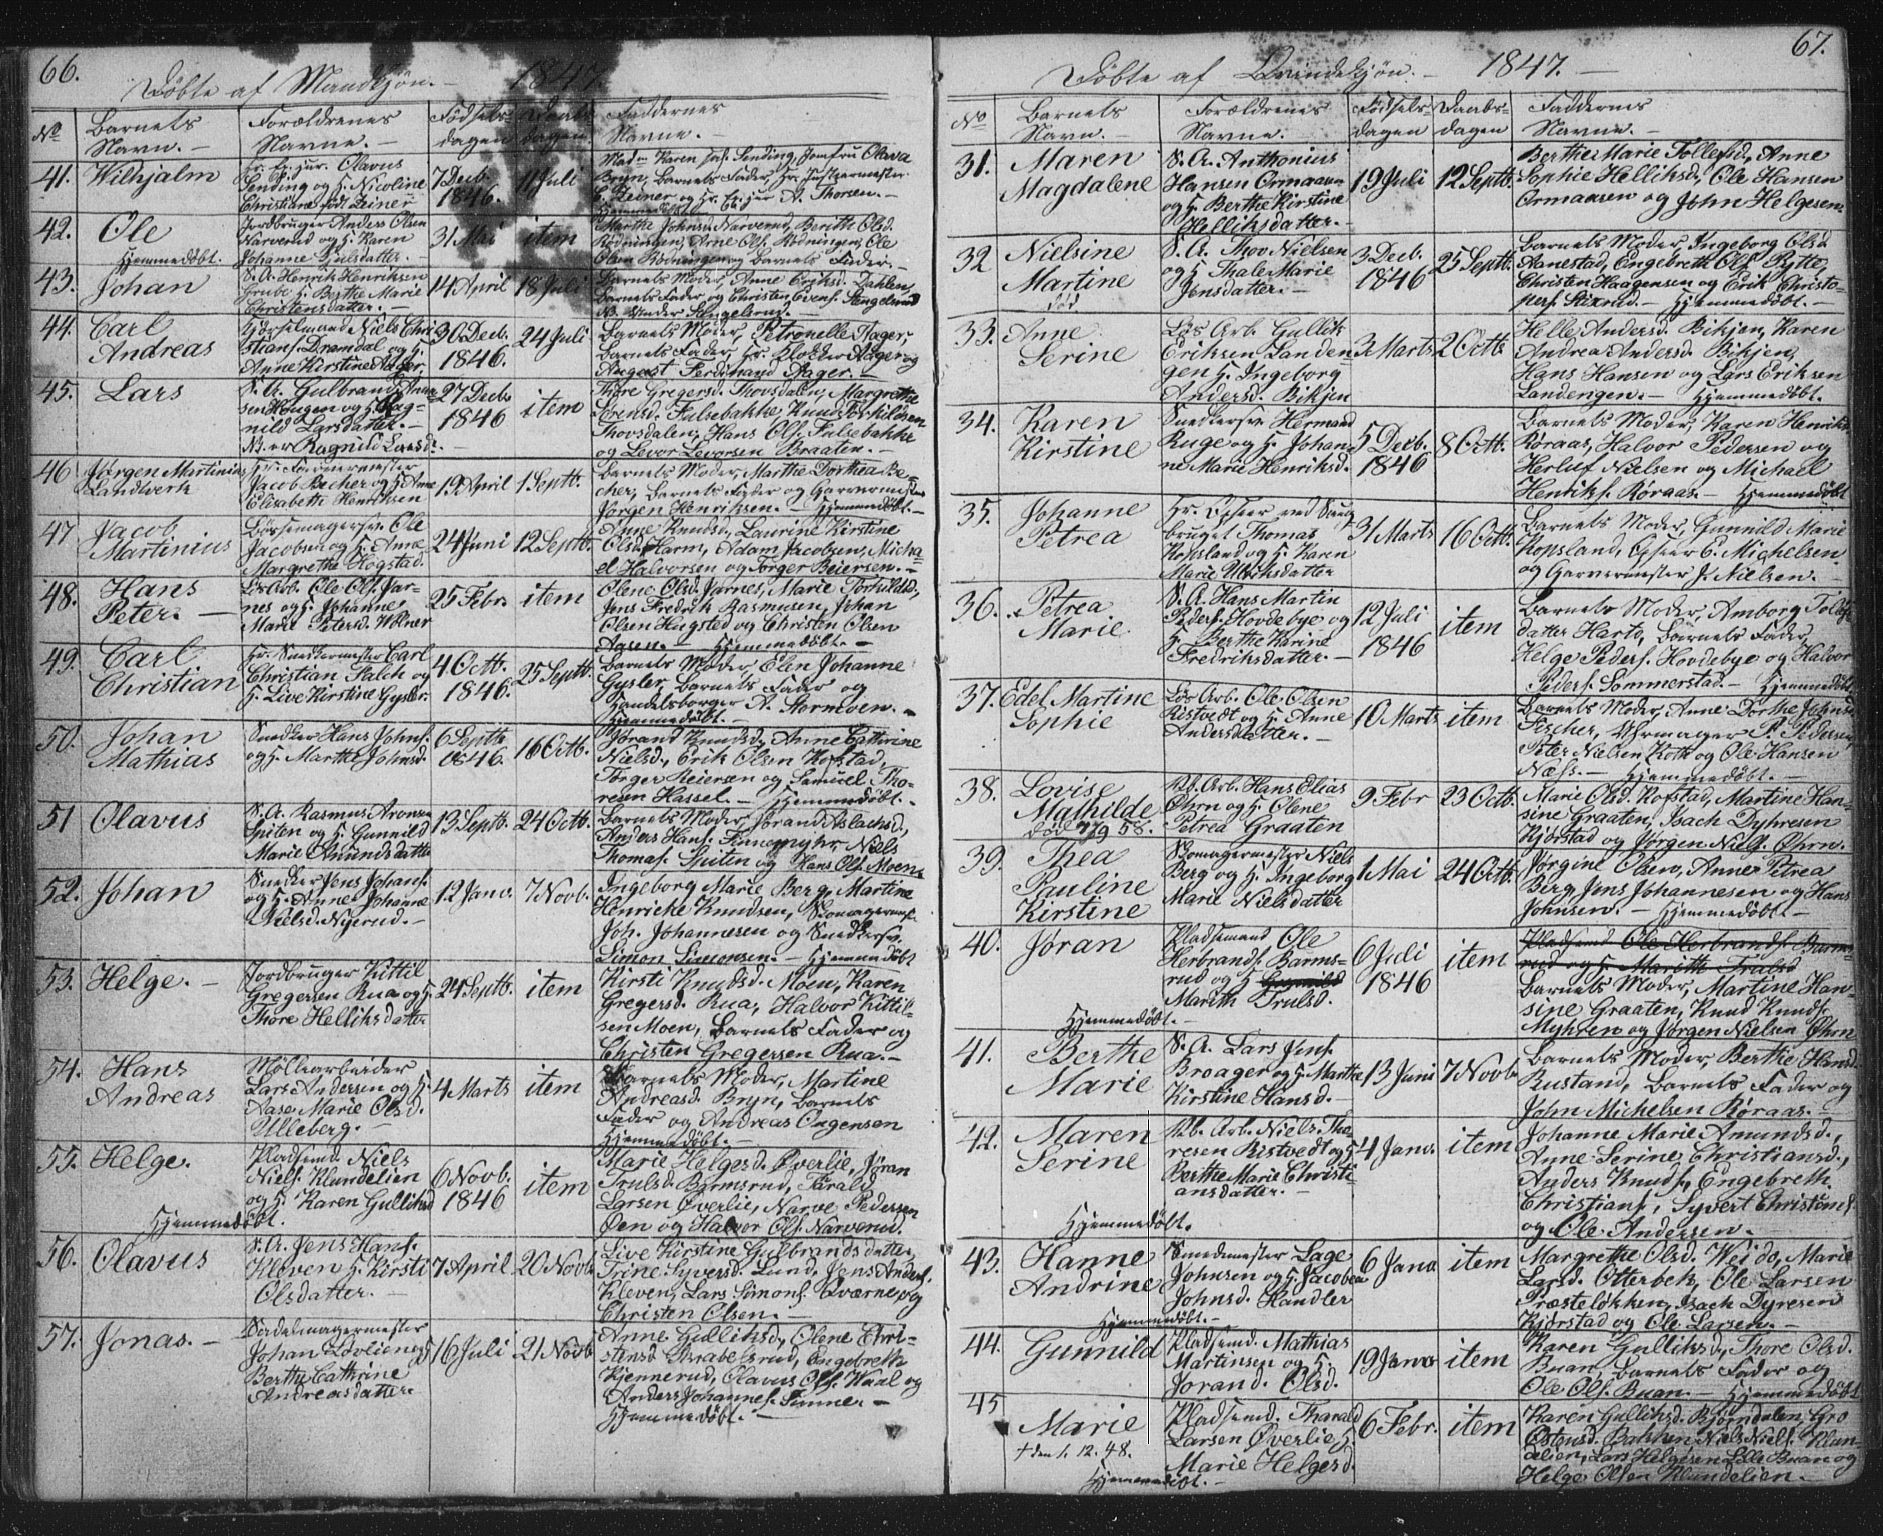 66.
Döbte af Mandkjön. — 1847
No
Barnets
Navn. —
Forældrenes
Navne. —
Födsels-
dagen
Daabs-
dagen
Faddernes
Navne. —
41. Wilhjalm
Hr. Ex. jur. Olavus
Sending og H. Nicoline
Christiane född Zeiner
7 Decb.
1846.
11 Juli
Bryn, Barnets Fader, Hr. Justkermester
C. Zeiner og Hr. Ex. jur A. Thorsen. —
Hjemmedöbt
42. Ole
Hjemmedöbt.
Jordbruger Anders Olsen
Narverud og H. Karen
Johanne Hjulsdatter. —
31 Mai
item
Marthe Johnsd. Narverud, Berith Olsd.
Rödningen, Arne Ols. Rödningen, Ole
Olsen Rödningen og Barnets Fader. —
43. Johan
S. A. Henrik Henriksen
Grube H. Berthe Marie
Christensdatter. —
14 April
18 Juli
Barnets Moder, Anne Eriksd. Dahlen,
Barnets Fader og Christen Evens. Sengelsrud
44. Carl
Andreas
Niels Chri-
stians. Dramdal og H.
Anne Kirstine Aager.
30 Decb.
1846.
24 Juli
Barnets Moder, Petronelle Aager,
Barnets Fader, Hr. Klokker Aager og
August Ferdinand Aager. —
45. Lars
S. A. Gulbrand Ander-
sen Hougen og H. Rag-
nild Larsdatter. —
NB. er Ragnild Larsd.
27 Decb.
1846
item
Thore Gregersd. Thovsdalen, Margrethe
Svensd. Fulsebakke, Knud Torkildsen
Thovsdalen, Hans Ols. Fulsebakke
og Levor Levorsen Braaten. —
46 Jörgen Martinius
Landverk
Hr. Farvermester
Jacob Becher og H. Anne
Elisabeth Henriksen
19 April
1 Septb.
Barnets Moder, Marthe Dorthea Be-
cher, Barnets Fader og Garvermester
Jörgen Henriksen. — Hjemmedöbt. —
47 Jacob
Martinius
Bössemagersv. Ole
Jacobsen og H. Anne
Margrethe Hogstad.
24 Juni
12 Septb.
Anne Knudsd., Laurine Kirstine
Olsd. Harm, Adam Jacobsen, Micha-
el Halvorsen og Torger Beiersen. —
48. Hans
Peter. —
Lös Arb. Ole Ols. Jar-
nes og H. Johanne
Marie Petersd. Wölner
25 Febr.
item
Olene Olsd. Jarnes, Marie Torkildsd.,
Jens Fredrik Rasmusen, Johan
Olsen Hugsted og Christen Olsen
Aasen. — Hjemmedöbt —
49. Carl
Christian
Hr. Snedkermester Carl
Christian Falch og
H. Live Kirstine Gysler.
4 Octb.
1846.
25 Septb.
Barnets Moder Elen Johanne
Gysler, Barnets Fader og
Handelsborger A. Tornloen. —
Hjemmedöbt. —
50. Johan
Mathias
Snedker Hans Johns.
og H. Marthe Johnsd.
6 Septb.
1846.
16 Octb.
Jörand Knudsd., Anne Cathrine
Nielsd., Erik Olsen Kofstad,
Torger Reiersen og Samuel Tho-
resen Hassel. — Hjemmedöbt.
51 Olavus
S. A. Rasmus Aronsen
Spiten og H. Gunnild
Marie Amundsdatter
13 Septb.
24 Octb.
Barnets Moder Jörand Aslachsd.,
Anders Hans. Finnemyhr, Niels
Thomas. Spiten og Hans Ols. Moen.
52. Johan
Snedker Jens Johans.
og H. Anne Johanne
Nielsd. Nyerud. —
12 Janv.
7 Novb.
Ingeborg Marie Berg, Martine
Henrieke Knudsen, Skomagermst.
Joh. Johannesen og Snedkersv.
Simon Simonsen. — Hjemmedöbt
53. Helge. —
Jordbruger Kittil
Gregersen Rua og H.
Thore Helliksdatter
24 Septb.
item
Kirsti Knudsd. Moen, Karen
Gregersd. Rua, Halvor Kittil-
sen Moen, Barnets Fader og
Christen Gregersen Rua. —
54. Hans
Andreas
Möllearbeider
Lars Andersen og H.
Aase Marie Olsd.
Ulleberg. —
4 Marts
item
Barnets Moder, Martine
Andreasd. Bryn, Barnets
Fader og Andreas Ongensen
Hjemmedöbt. —
55. Helge.
Hjemmedöbt.
Pladsemd. Niels
Niels. Klundelien
og H. Karen Gulliksd
6 Novb.
1846
item
Marie Helgesd. Överlie, Jöran
Trulsd. Barmsrud, Tarald
Larsen Överlie, Narve Pedersen
Öen og Halvor Ols. Narverud.
56. Olavus
S. A. Jens Hans.
Kleven H. Kirsti
Olsdatter. —
7 April
20 Novb.
Live Kirstine Gulbrandsdatter,
Trine Syversd. Lund, Jens Anders.
Kleven, Lars Simons. Qværne, og
Christen Olsen. —
57. Jonas. —
Sadelmagermester
Johan Lövlien og H.
Berthe Cathrine
Andreasdatter
16 Juli
21 Novb.
Anne Gulliksd., Olene Chri-
stensd. Skrabelsrud, Engebreth
Kjennerud, Olavus Ols. Waal og
Anders Johannes. Temmer. —
Hjemmedöbt. —
67.
Döbte af Qvindekjön. — 1847. —
No
Barnets
Navn. —
Forældrenes
Navne. —
Födsels-
dagen
Daabs-
dagen
Faddernes
Navne. —
31. Maren
Magdalene
S. A. Anthonius
Hansen Ormaasen
og H. Berthe Kirstine
Helliksdatter. —
19 Juli
12 Septb.
Berthe Marie Tollefsd., Anne
Sophie Helliksd., Ole Hansen
Ormaasen og John Helgesen.
32 Nielsine
Martine
död
S. A. Thov Nielsen
og H. Thale Marie
Jensdatter. —
3 Decb.
1846
25 Septb.
Barnets Moder, Ingeborg Olsd
Aanestad, Engebreth Ols. Pytte,
Christen Haagensen og Erik Christo-
phers. Stixrud. — Hjemmedöbt. —
33. Anne
Serine
Lös Arb. Gullik
Eriksen Landen-
gen H. Ingeborg
Andersd. Bikjen
3 Marts
2 Octb.
Helle Andersd. Bikjen, Karen
Andrea Andersd. Bikjen,
Hans Hansen og Lars Eriksen
Landengen. — Hjemmedöbt.
34. Karen
Kirstine
Snedkersv. Hermand
Ruge og H. Johan-
ne Marie Henriksd.
5 Decb.
1846
8 Octb.
Barnets Moder, Karen Henriksd.
Röraas, Halvor Pedersen og
Herluf Nielsen og Michael
Henriks. Röraas. — Hjemmedöbt
35. Johanne
Petrea
Hr. Opseer ved Saug-
bruget Thomas
Kopsland og H. Karen
Marie Ulriksdatter
31 Marts
16 Octb.
Barnets Moder, Gunnild Marie
Kopsland, Opseer E. Michelsen
og Garvermester J. Nielsen. —
36. Petrea
Marie
S. A. Hans Martin
Peders. Hovdebye og
H. Berthe Karine
Fredriksdatter. —
12 Juli
1846
item
Barnets Moder, Amborg Tollefs-
datter Harto, Barnets Fader,
Helge Peders. Hovdebye og Halvor
Peders. Sommerstad. — Hjemmedöbt.
37. Edel Martine
Sophie
Lös Arb. Ole Olsen
Ristvedt og H. Anne
Andersdatter. —
10 Marts
item
Barnets Moder, Anne Dorthe Johnsd.
Fischer, Uhrmager P. Pedersen,
Peter Nielsen Koth og Ole Hansen
Næss. — Hjemmedöbt. —
38. Lovise
Mathilde
död 7/9 58.
Rb. Arb. Hans Elias
Öhrn og H. Olene
Petrea Graaten
9 Febr
23 Octb.
Marie Olsd. Kofstad, Martine Han-
sine Graaten, Isach Dyhresen
Kjörstad og Jörgen Niels. Öhrn.
39. Thea
Pauline
Kirstine
Skomagermester Niels
Berg og H. Ingeborg
Marie Nielsdatter
1 Mai
24 Octb.
Jörgine Olsen, Anne Petrea
Berg, Jens Johannesen og Hans
Johnsen. — Hjemmedöbt —
40. Jöran
Hjemmedöbt. —
Pladsemand Ole
Herbrands. Barms-
rud og H. Gognild
Marith Trulsd.
6 Juli
1846
item
Pladsemd Ole Herbrands. Barms-
rud og H. Marith Trulsd
Barnets Moder, Martine Han-
sine Graaten, Knud Knuds.
Myhren og Jörgen Nielsen Öhrn
41. Berthe
Marie
S. A. Lars Jens.
Broager og H. Marthe
Kirstine Hansd. —
13 Juni
7 Novb.
Barnets Moder, Berthe Hansd.
Rustand, Barnets Fader og
John Michelsen Röraas. —
42. Maren
Serine
Hjemmedöbt.
Rb. Arb. Niels The-
resen Ristvedt og H.
Berthe Marie Christi-
ansdatter. —
4 Janv.
item
Johanne Marie Amundsd.,
Anne Serine Christiansd.,
Anders Knuds., Engebreth
Christians., Syvert Christians.
og Ole Andersen. —
43. Hanne
Andrine
Hjemmedöbt. —
Smedmester Lage
Johnsen og H. Jacobea
Johnsd. Kandler
6 Janv
item
Margrethe Olsd. Weido, Marie
Larsd. Otterbek, Ole Larsen
Præstelökken, Isach Dyresen
Kjörstad og Ole Larsen. —
44. Gunnild
Pladsemd. Mathias
Martinsen og H.
Jorand. Olsd.
19 Janv
item
Karen Gulliksd., Thore Olsd.
Buan, Barnets Fader og
Ole Ols. Buan. — Hjemmedöbt
45
Marie
† den 1. 12. 48.
Hjemmedöbt. —
Pladsemd. Tharald
Larsen Överlie H.
Marie Helgesd.
6 Febr.
item
Karen Gulliksd. Bjorndalen, Gro
Ostensd. Bakken, Niels Niels. Klun-
delien, Lars Helgesen Lille Buan og
Helge Olsen Klundelien. —